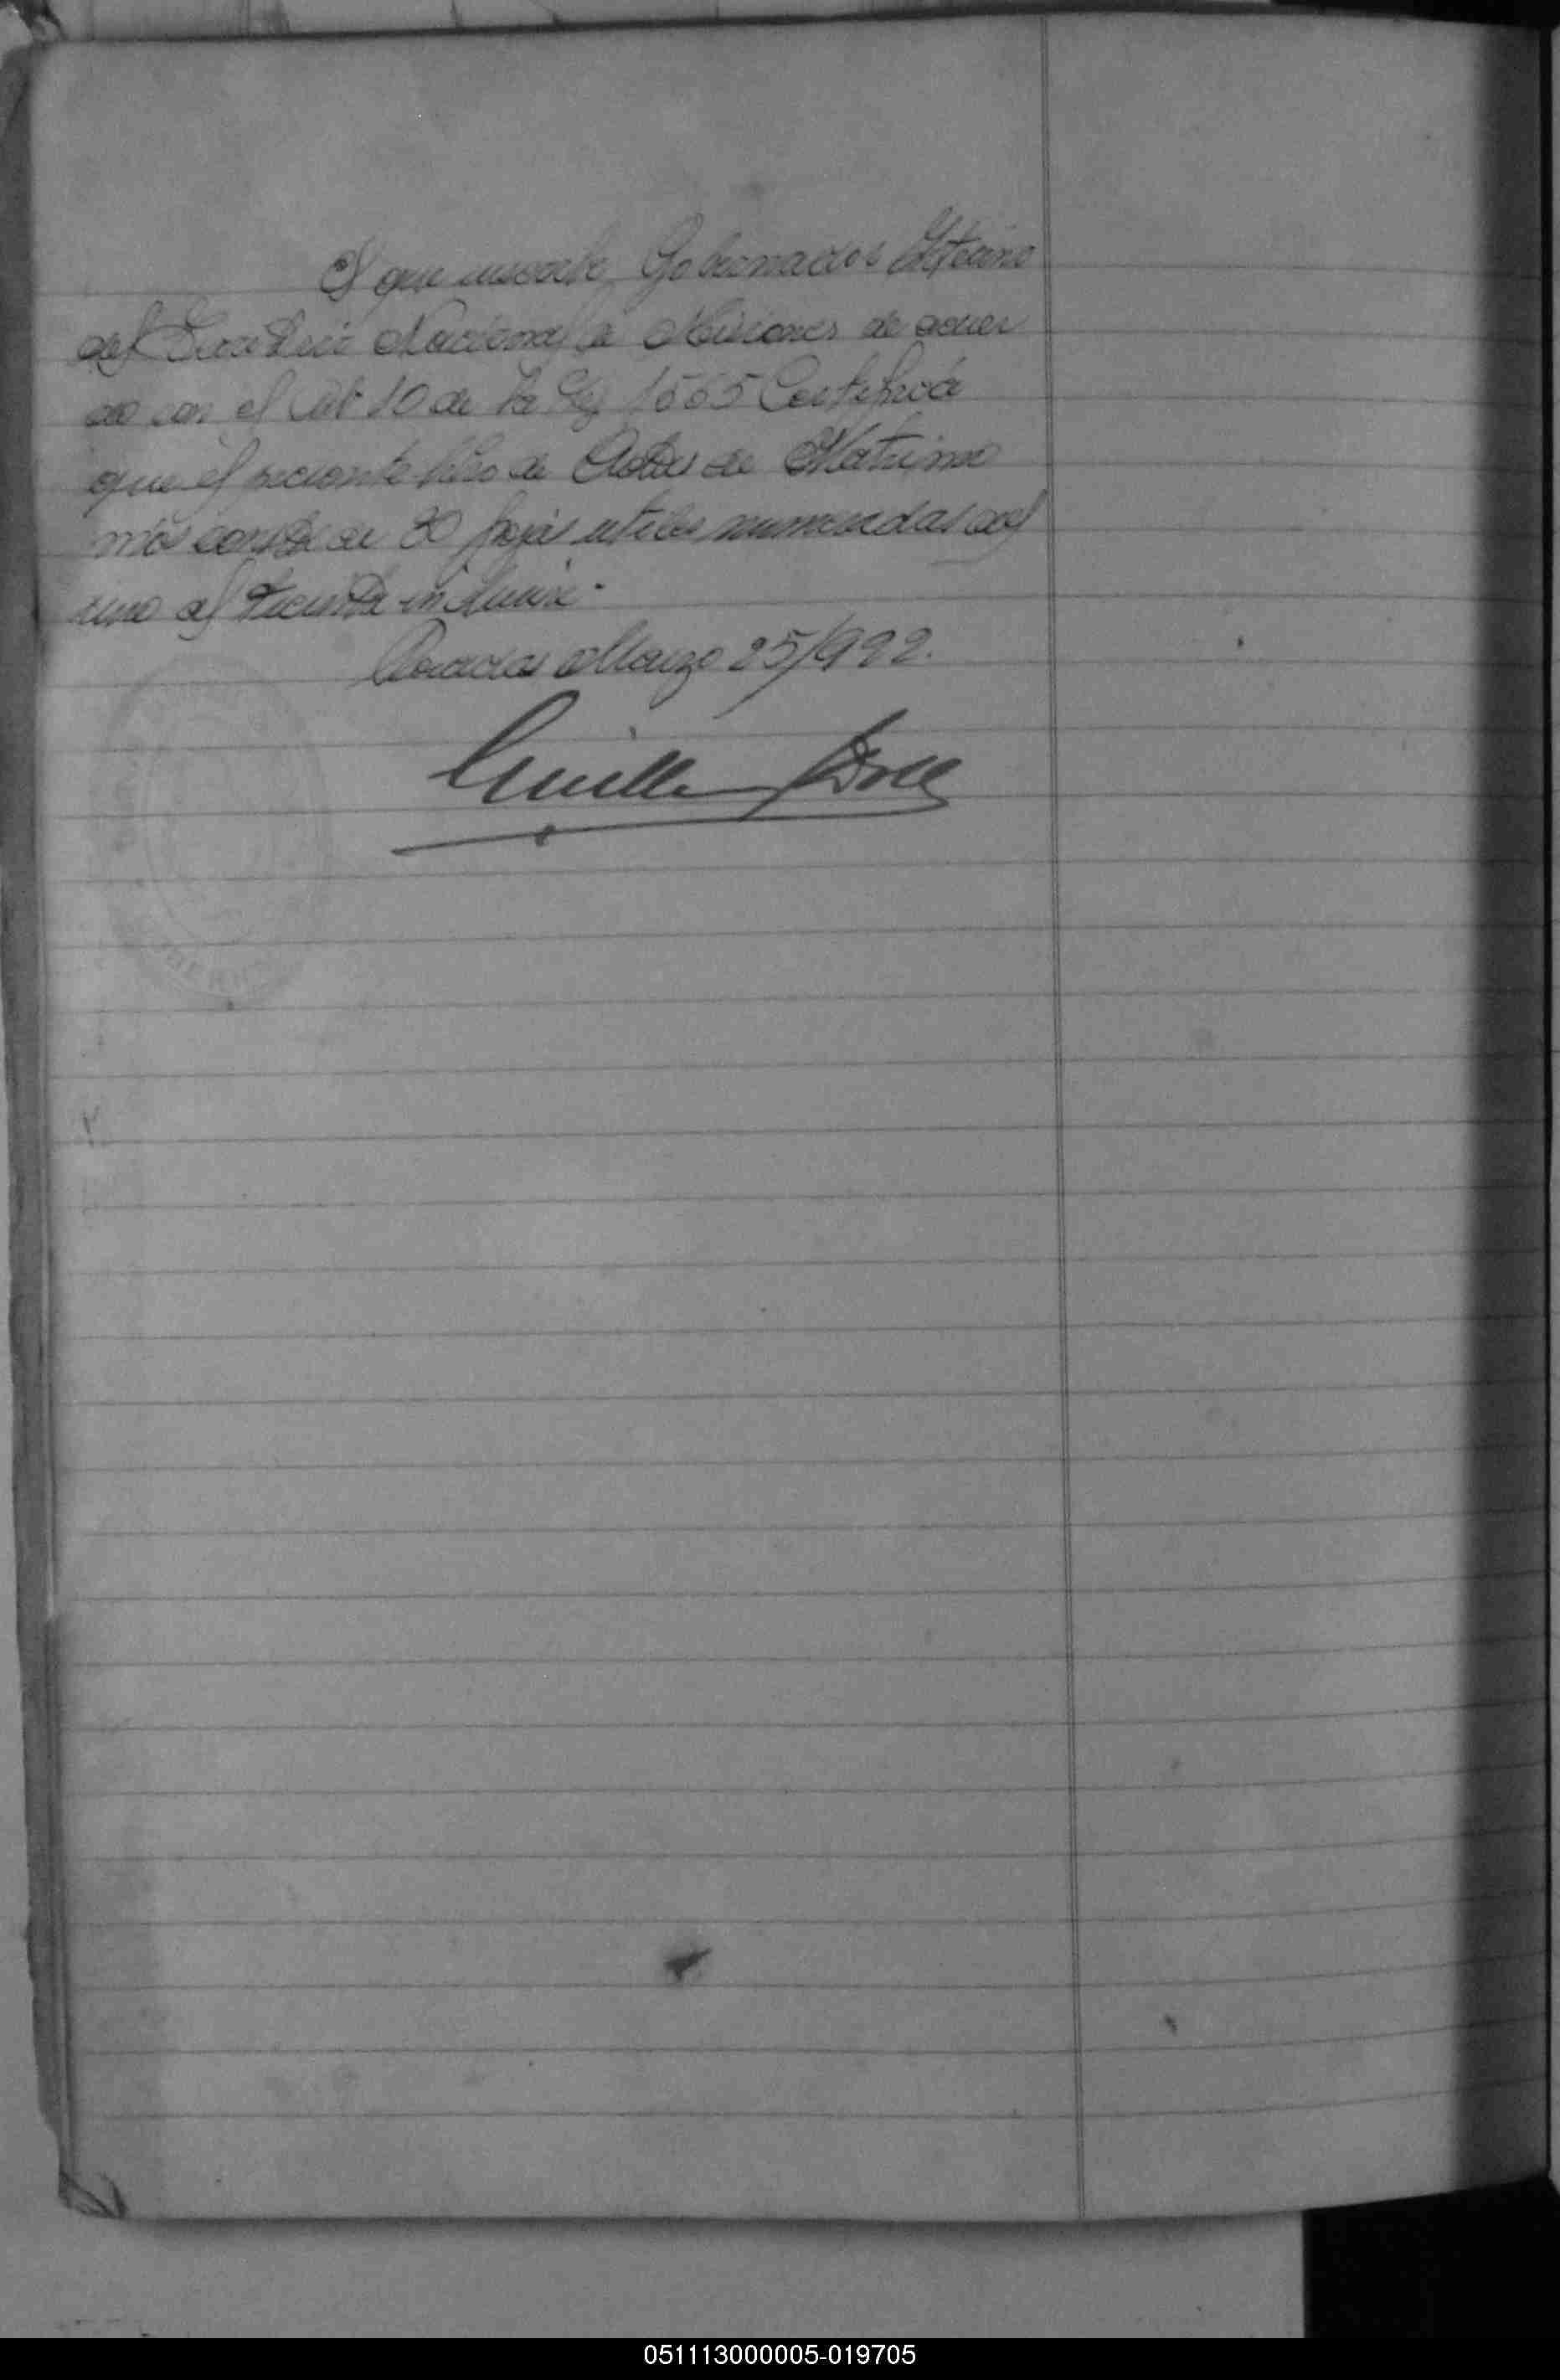 El que suscribe, Gobernador Interino
del Territorio Nacional de Misiones de acuer
do con el Art 10 de la Ley 1565 Certifica
que el presente libro de Actas de Matrimo
nios consta de 30 fojas utiles numeradas del
uno al treinta inclusive.
Posadas Marzo 25/922.
051113000005-019705